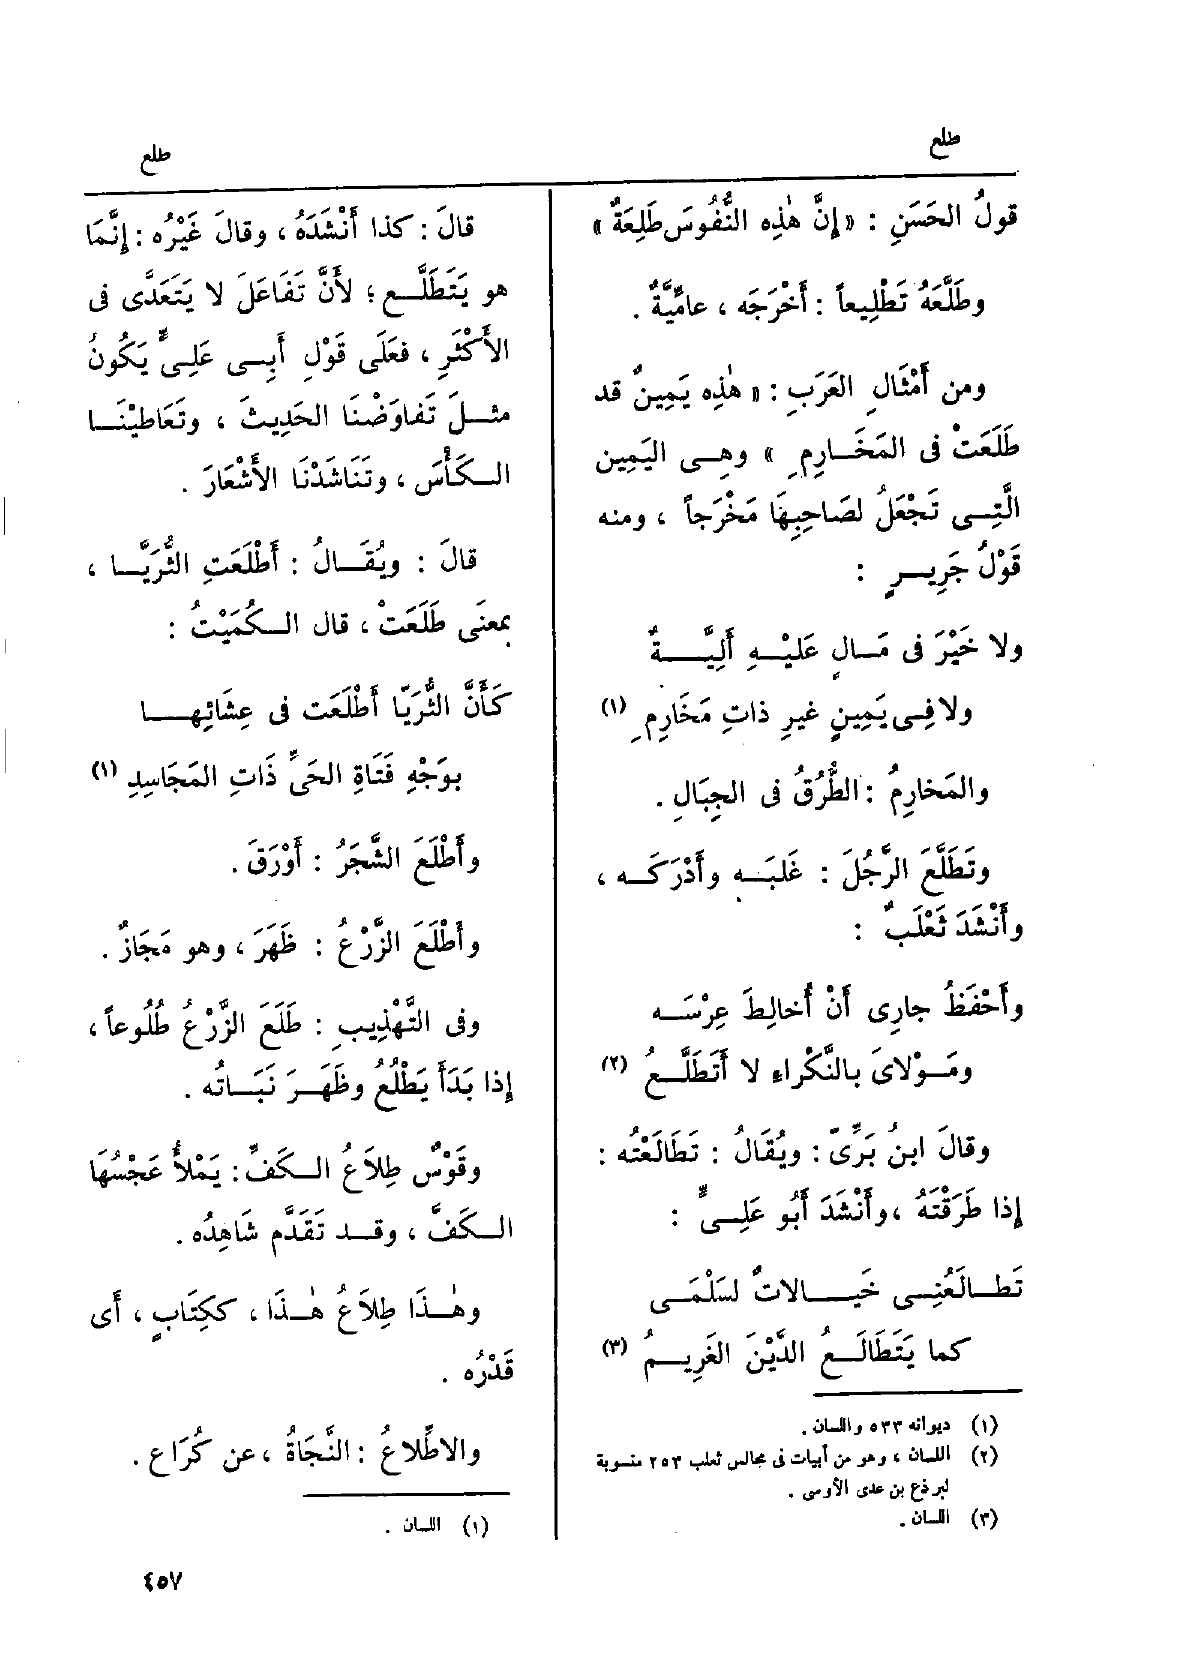 طلع
طلع
قولُ الحَسَنِ : « إنَّ هٰذِه النُّفُوسَ طَلِعَةٌ »
وطَلَّعَهُ تَطْلِيعاً : أَخْرَجَه ، عامِّيَّةٌ .
ومن أَمْثَالِ العَرَبِ : « هٰذِه يَمِينٌ قد
طَلَعَتْ فى المَخَارِمِ » وهِى اليَمِين
الَّتِى تَجْعَلُ لصَاحِبِهَا مَخْرَجاً ، ومنه
قَوْلُ جَرِيرٍ :
ولا خَيْرَ فى مَالٍ عَلَيْهِ أَلِيَّةٌ
ولا فِى يَمِينٍ غيرِ ذاتِ مَخَارِمِ (١)
والمَخارِمُ : الطُّرُقُ فى الجِبَالِ .
وتَطَلَّعَ الرَّجُلَ : غَلبَه وأَدْرَكَه ،
وأَنْشَدَ ثَعْلَبٌ :
وأَحْفَظُ جارِى أَنْ أُخالِطَ عِرْسَه
ومَوْلاىَ بالنَّكْراءِ لا أَتَطَلَّعُ (٢)
وقالَ ابنُ بَرِّىّ : ويُقَالُ : تَطَالَعْتُه :
إذا طَرَقْتَهُ ، وأَنْشَدَ أَبُو عَلِىٍّ :
تَطالَعُنِى خَيالاتٌ لسَلْمَى
كما يَتَطَالَعُ الدَّيْنَ الغَرِيمُ (٣)
(١) ديوانه ٥٣٣ واللسان .
(٢) اللسان ، وهو من أبيات فى مجالس ثعلب ٢٥٣ منسوبة
لبرذع بن عدى الأوسى .
(٣) اللسان .
قالَ : كذا أَنْشَدَهُ ، وقالَ غَيْرُه : إنَّمَا
هو يَتَطَلَّع ؛ لأَنَّ تَفَاعَلَ لا يَتَعَدَّى فى
الأَكْثَرِ ، فعَلَى قَوْلِ أَبِى عَلِىٍّ يَكُونُ
مثلَ تَفاوَضْنَا الحَدِيثَ ، وتَعَاطَيْنَا
الكَأْسَ ، وتَنَاشَدْنَا الأَشْعَارَ .
قالَ : ويُقَالُ : أَطْلَعَتِ الثُّرَيَّا ،
بمعنَى طَلَعَتْ ، قال الكُمَيْتُ :
كَأَنَّ الثُّرَيّا أَطْلَعَت فى عِشَائِها
بوَجْهِ فَتَاةِ الحَىِّ ذَاتِ المَجَاسِدِ (١)
وأَطْلَعَ الشَّجَرُ : أَوْرَقَ .
وأَطْلَعَ الزَّرْعُ : ظَهَرَ ، وهو مَجَازٌ .
وفى التَّهْذِيبِ : طَلَعَ الزَّرْعُ طُلُوعاً ،
إذا بَدَأَ يَطْلُعُ وظَهَرَ نَبَاتُه .
وقَوْسٌ طِلاَعُ الكَفِّ : يَمْلأُ عَجْسُهَا
الكَفَّ ، وقد تَقَدَّم شَاهِدُه .
وهٰذَا طِلاَعُ هٰذَا ، ككِتَابٍ ، أَى
قَدْرُه .
والاطِّلاعُ : النَّجَاةُ ، عن كُرَاع .
(١) اللسان .
٤٥٧